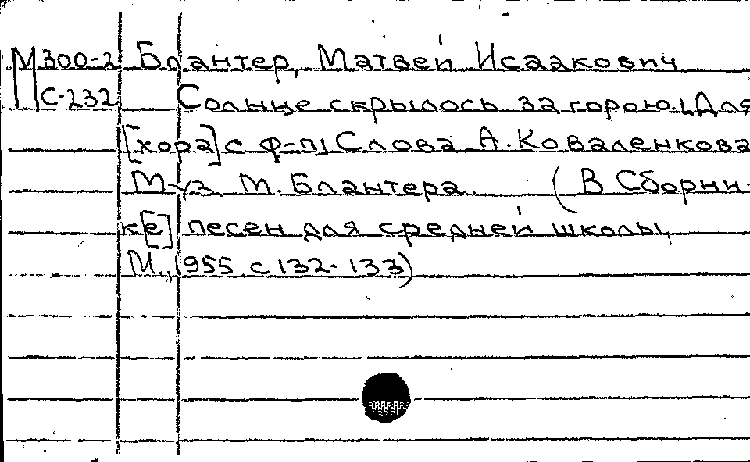 М300-2 Блантер, Матвей Исаакович
С-232 Солнце скрылось за горою. Для
[хора] с ф-п. Слова А. Коваленкова
Муз. М. Блантера. (В Сборни-
к[е] песен для средней школы,
М., 1955. с 132-133)